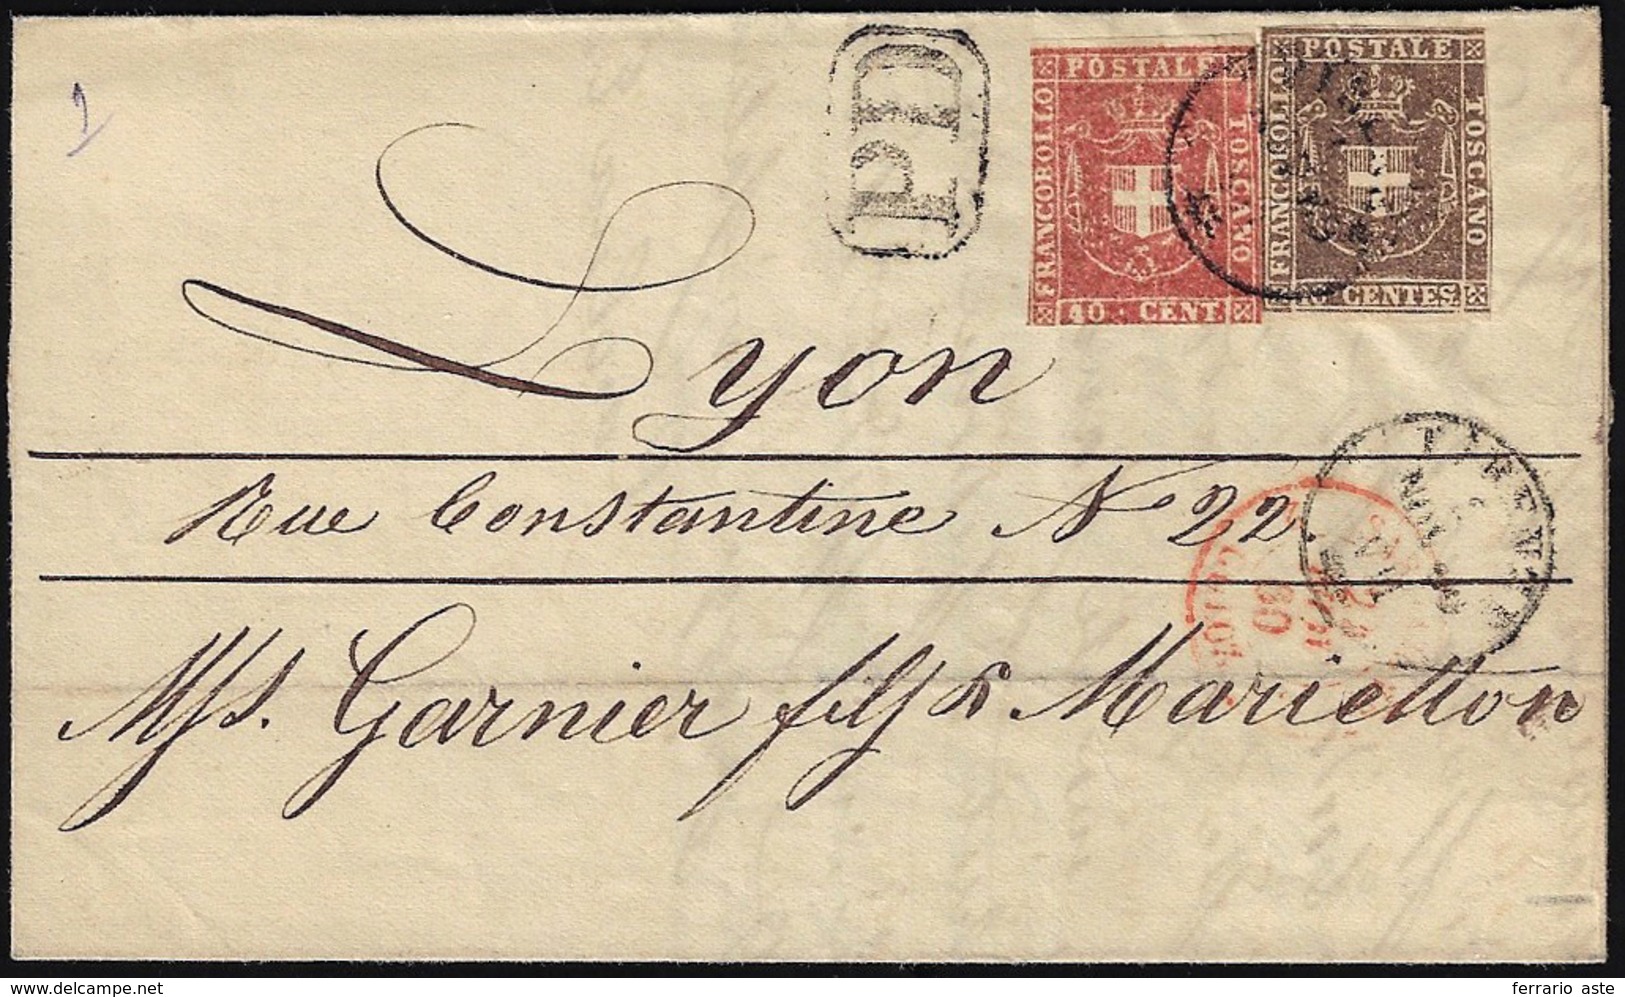 1
PD
FRANCOBOLLO POSTALE TOSCANO
40 CENT
FRANCOBOLLO POSTALE TOSCANO
10 CENTES.
Lyon
FIRENZE
Rue Constantine N 22.
Mrs. Garnier fils & Marietton
delcampe.net
ferrario aste